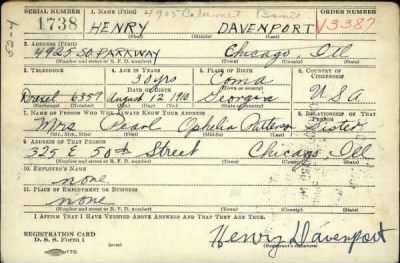 SERIAL NUMBER 1. NAME (Print) 4905 Calumet ORDER NUMBER
1738 HENRY DAVENPORT V3387
(First) (Middle) (Last)
2. ADDRESS (Print)
4925-SO. PARKWAY Chicago, Ill
(Number and street or R. F. D. number) (Town) (County) (State)
3. TELEPHONE 4. AGE IN YEARS 5. PLACE OF BIRTH 6. COUNTRY OF CITIZENSHIP
30 yrs Coma
Drexel 6359 DATE OF BIRTH August 12 1910 Georgia U.S.A.
(Exchange) (Number) (Mo.) (Day) (Yr.) (State or country)
7. NAME OF PERSON WHO WILL ALWAYS KNOW YOUR ADDRESS 8. RELATIONSHIP OF THAT PERSON
Mrs Pearl Ophelia Patterson Sister
(Mr., Mrs., Miss) (First) (Middle) (Last)
9. ADDRESS OF THAT PERSON
325 E 50th Street Chicago, Ill
(Number and street or R. F. D. number) (Town) (County) (State)
10. EMPLOYER'S NAME
none
11. PLACE OF EMPLOYMENT OR BUSINESS
none
(Number and street or R. F. D. number) (Town) (County) (State)
I AFFIRM THAT I HAVE VERIFIED ABOVE ANSWERS AND THAT THEY ARE TRUE.
REGISTRATION CARD
D. S. S. Form 1
Henry Davenport
(Registrant's signature)